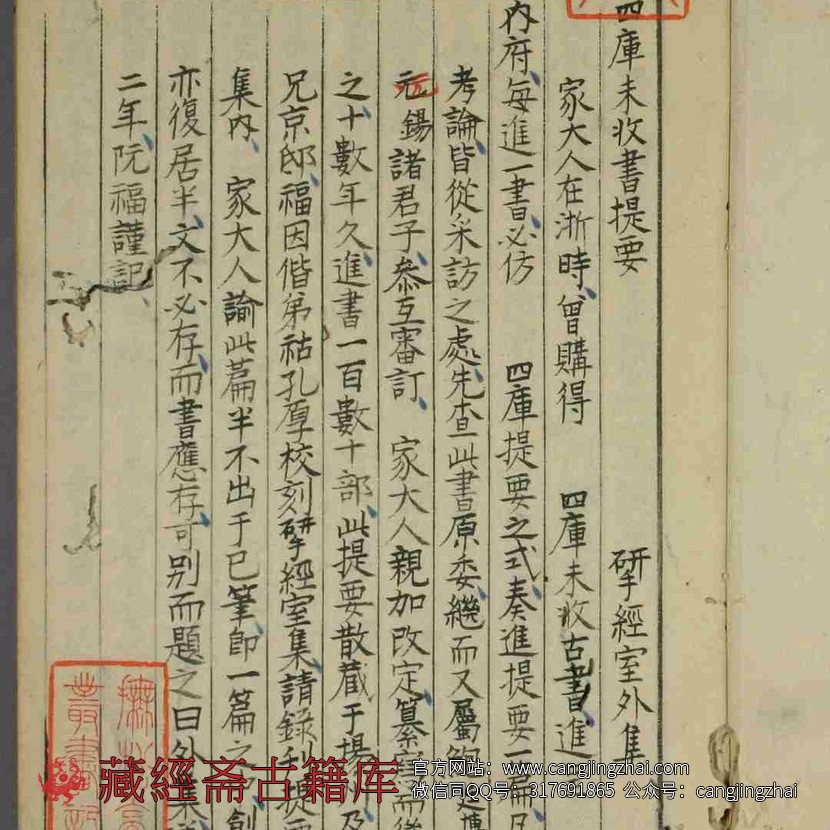 四庫未收書提要 揅經室外集
家大人在浙時曾購得 四庫未收古書進
內府每進一書必仿 四庫提要之式奏進提要一
考論皆從采訪之處先查此書原委繼而又屬鮑
元錫諸君子參互審訂 家大人親加改定纂寫而後
之十數年久進書一百數十部此提要散藏于揚州及
兄京邸福因偕弟祜孔厚校刻揅經室集請錄刊提要
集內 家大人諭此篇半不出于己筆即一篇之
亦復居半文不必存而書應存可别而題之曰外集
二年阮福謹記
藏經斋古籍库
官方网站：www.cangjingzhai.com
微信同QQ号：317691865 公众号：cangjingzhai